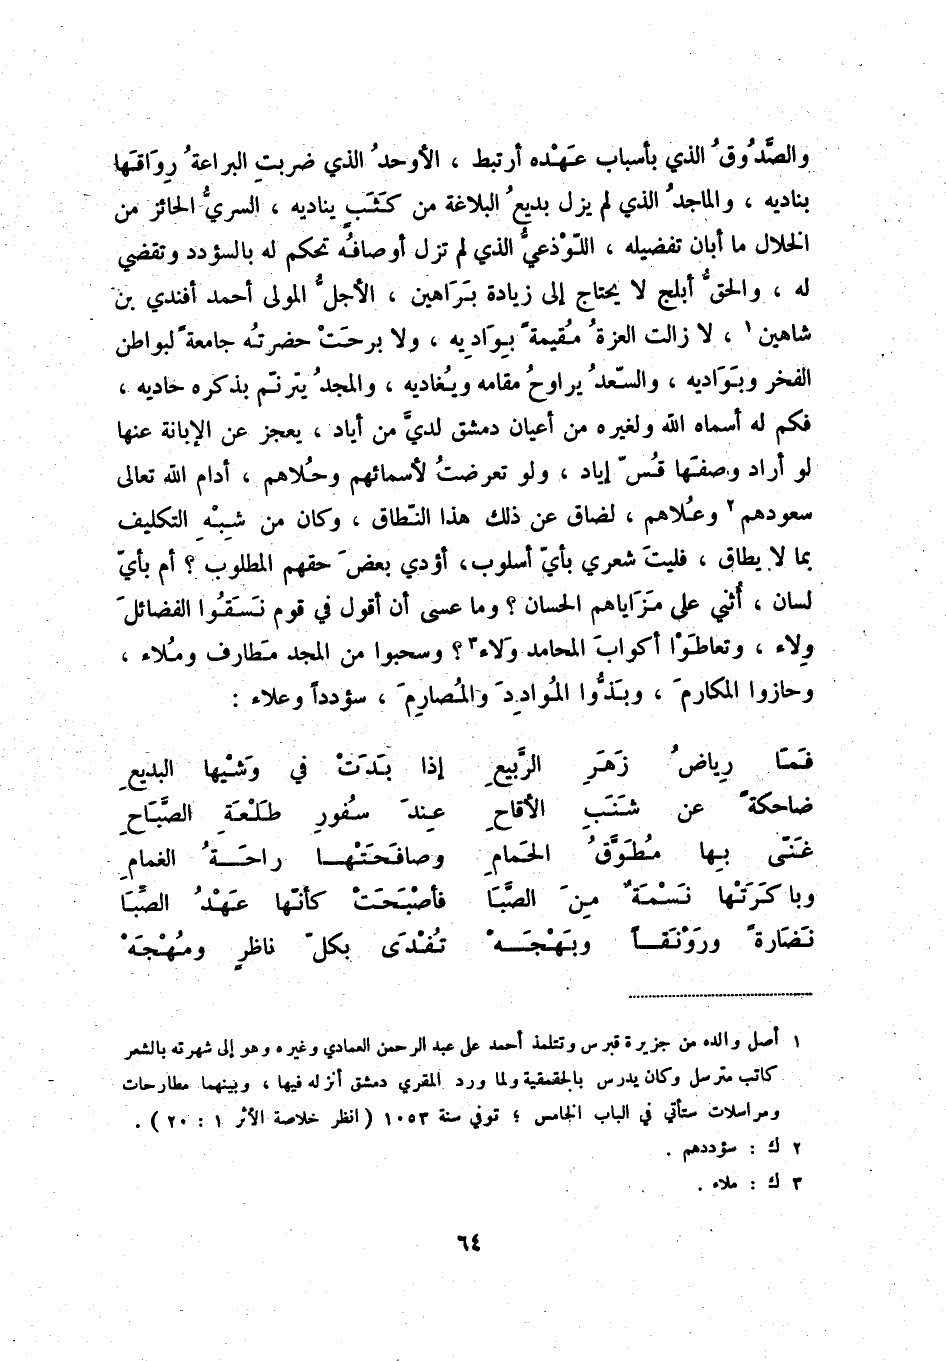 والصَّدُوقُ الذي بأسباب عَهْده أرتبط ، الأوحدُ الذي ضربتِ البراعةُ رِوَاقَها
بناديه ، والماجدُ الذي لم يزل بديعُ البلاغة من كَثَبٍ يناديه ، السريُّ الحائز من
الخلال ما أبان تفضيله ، اللّوْذعيُّ الذي لم تزل أوصافُه تحكم له بالسؤدد وتقضي
له ، والحقُّ أبلج لا يحتاج إلى زيادة بَرَاهين ، الأجلُّ المولى أحمد أفندي بن
شاهين ١ ، لا زالت العزةُ مُقيمةً بِوَادِيه ، ولا برحَتْ حضرتُه جامعةً لبواطن
الفخر وبَوَاديه ، والسّعدُ يراوحُ مقامه ويُغاديه ، والمجدُ يترنّم بذكره حاديه ،
فكم له أسماه الله ولغيره من أعيان دمشق لديَّ من أياد ، يعجز عن الإبانة عنها
لو أراد وصفَها قُسّ إياد ، ولو تعرضتُ لأسمائهم وحُلاهم ، أدام الله تعالى
سعودهم ٢ وعُلاهم ، لضاق عن ذلك هذا النّطاق ، وكان من شِبْهِ التكليف
بما لا يطاق ، فليتَ شعري بأيّ أسلوب، أؤدي بعضَ حقهم المطلوب ؟ أم بأيّ
لسان ، أُثني على مَزَاياهم الحسان ؟ وما عسى أن أقول في قوم نَسَقُوا الفضائلَ
وِلاء ، وتعاطَوْا أكوابَ المحامد وَلاء ٣ ؟ وسحبوا من المجد مَطارف ومُلاء ،
وحازوا المكارمَ ، وبَذُّوا المُوادِدَ والمُصارِمَ ، سؤدداً وعلاء :
فَمَا رِياضُ زَهَرِ الرَّبيعِ إذا بَدَتْ في وَشْيِها البديعِ
ضاحكةً عن شَنَبِ الأقاحِ عِندَ سُفورِ طَلْعَةِ الصَّبَاحِ
غَنّى بِها مُطَوَّقُ الحَمامِ وصافَحَتْها راحَةُ الغمامِ
وباكَرَتْها نَسْمَةٌ مِنَ الصَّبَا فأصْبَحَتْ كأنّها عَهْدُ الصِّبَا
نَضَارةً ورَوْنَقاً وبَهْجَهْ تُفْدَى بكلّ ناظرٍ ومُهْجَهْ
١ أصل والده من جزيرة قبرس وتتلمذ أحمد على عبد الرحمن العمادي وغيره وهو إلى شهرته بالشعر
كاتب مترسل وكان يدرس بالجقمقية ولما ورد المقري دمشق أنزله فيها ، وبينهما مطارحات
ومراسلات ستأتي في الباب الخامس ؛ توفي سنة ١٠٥٣ ( انظر خلاصة الأثر ١ : ٢٠ ) .
٢ ك : سؤددهم .
٣ ك : ملاء .
٦٤